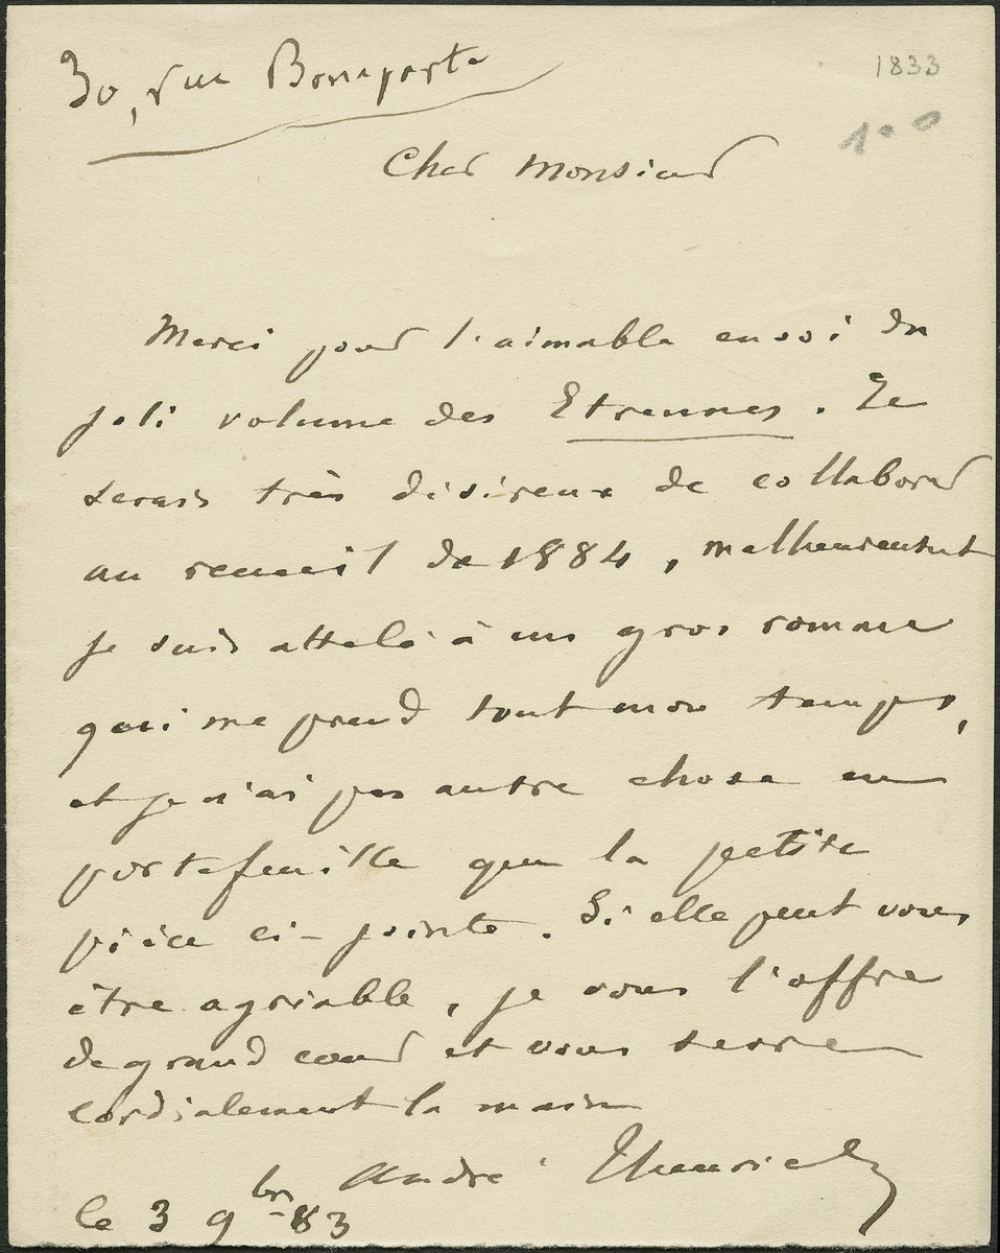 30, rue Bonaparte
1833
100
Cher Monsieur
Merci pour l'aimable envoi du
joli volume des Etrennes. Je
serais très désireux de collaborer
au recueil de 1884, malheureusement
je suis attelé à un gros roman
qui me prend tout mon temps,
et je n'ai pas autre chose en
portefeuille que la petite
pièce ci-jointe. Si elle peut vous
être agréable, je vous l'offre
de grand cœur et vous serre
cordialement la main
André Theuriet
le 3 9bre 83